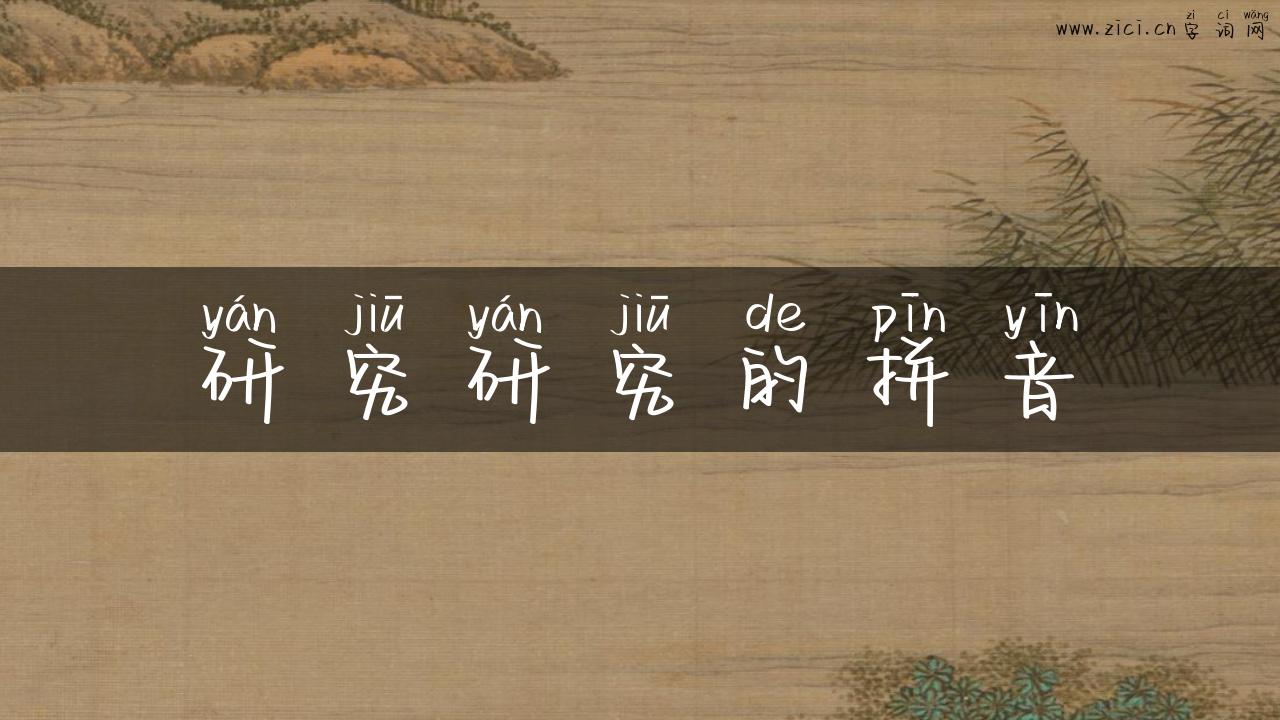 zì cí wǎng
www.zici.cn 字词网
yán jiū yán jiū de pīn yīn
研究研究的拼音